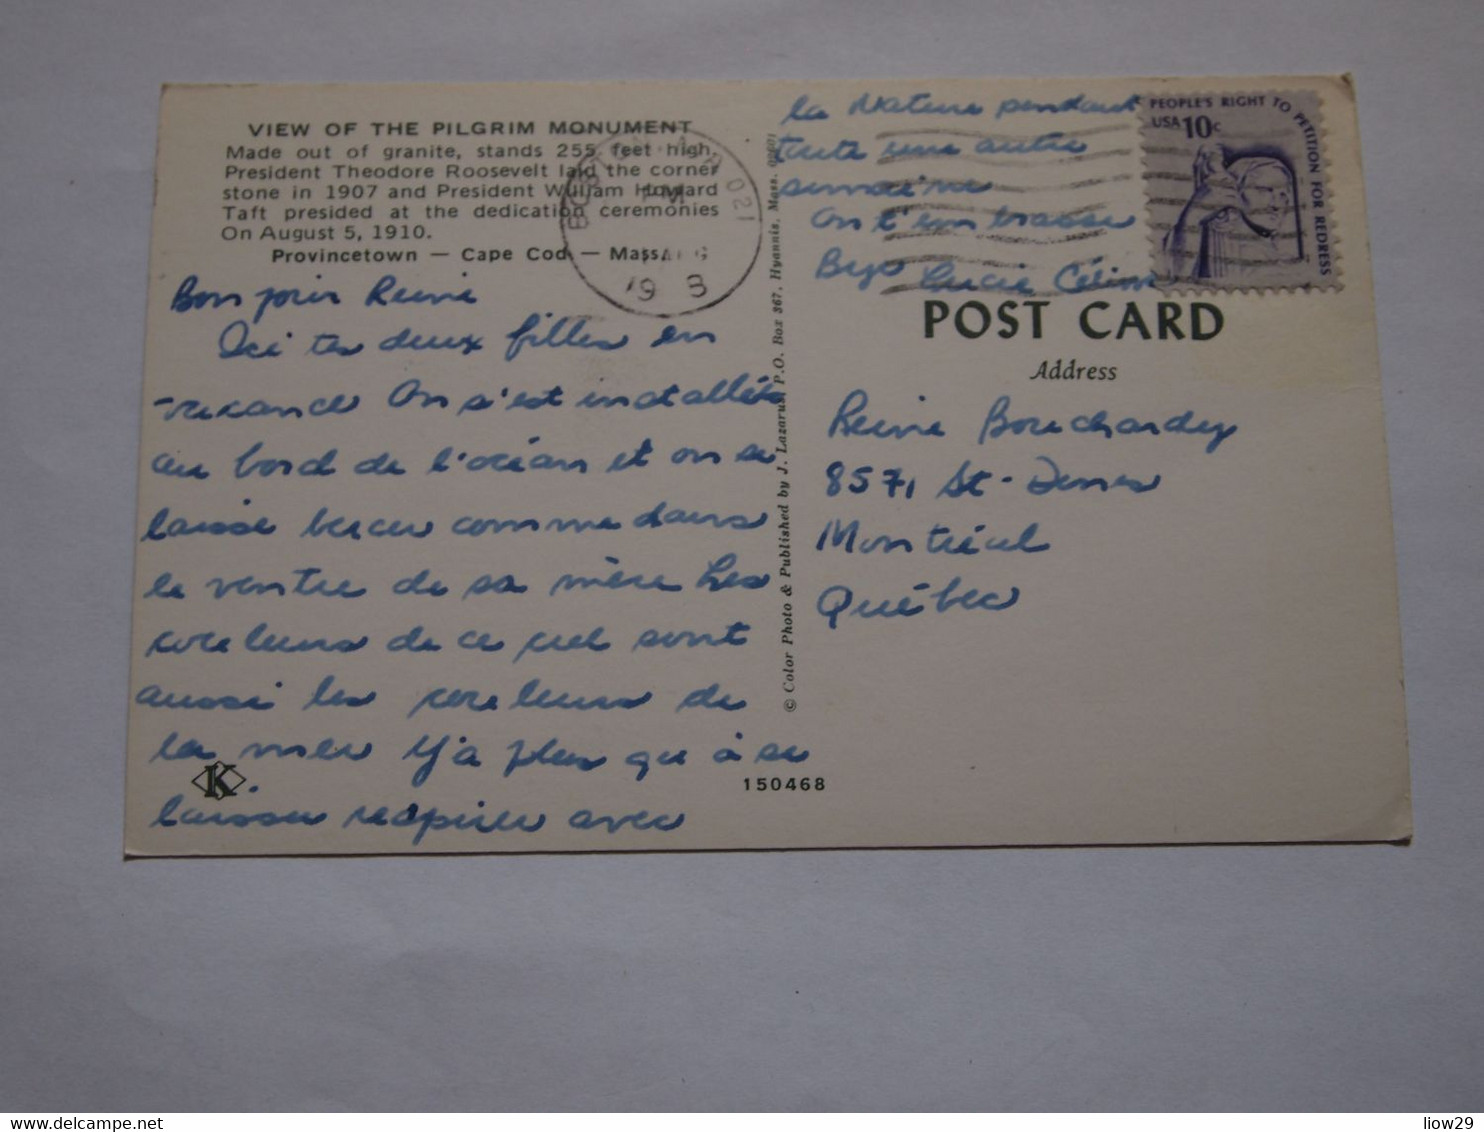 VIEW OF THE PILGRIM MONUMENT
Made out of granite, stands 255 feet high,
President Theodore Roosevelt laid the corner
stone in 1907 and President William Howard
Taft presided at the dedication ceremonies
On August 5, 1910.
Provincetown — Cape Cod — Mass.
PM
021
AUG
19
Bonjour Reine
Ici tes deux filles en
vacance On s'est installés
au bord de l'océan et on se
laisse bercer comme dans
le ventre de sa mère Les
couleurs de ce ciel sont
aussi les couleurs de
la mer Y'a plus qu'à se
laisser respirer avec
K
150468
© Color Photo & Published by J. Lazarus, P.O. Box 367, Hyannis, Mass. 02601
la Nature pendant
toute une autre
semaine
On t'embrasse
Bye Lucie Céline
PEOPLE'S RIGHT TO PETITION FOR REDRESS
USA 10c
POST CARD
Address
Reine Bouchardey
8571 St-Denis
Montréal
Québec
liow29